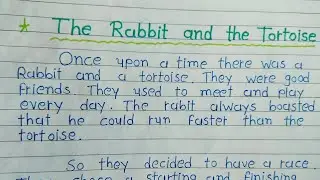 * The Rabbit and the Tortoise
Once upon a time there was a
Rabbit and a tortoise. They were good
friends. They used to meet and play
every day. The rabit always boasted
that he could run faster than the
tortoise.
So they decided to have a race.
They chose a starting and finishing